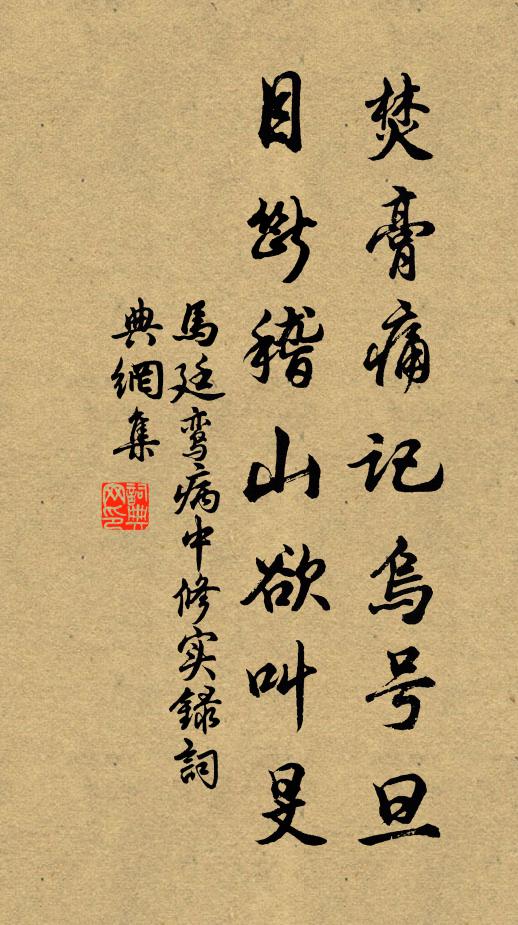 焚膏痛记乌号旦
目断稽山欲叫旻
馬廷鸾病中修实錄詞
典網集
詞典网印